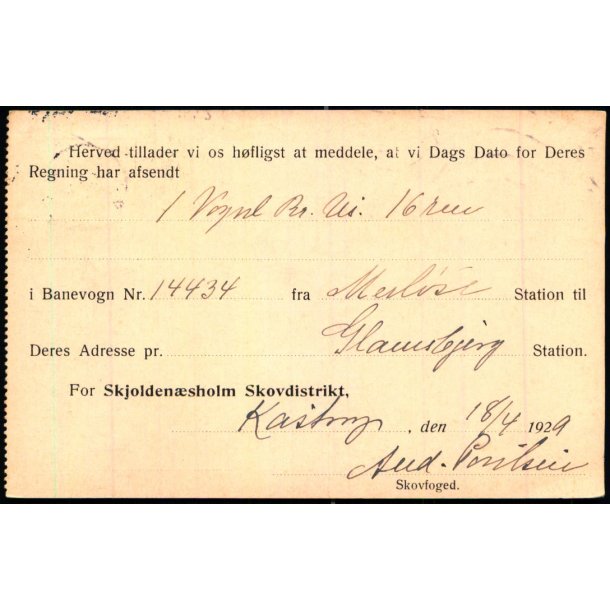 Herved tillader vi os høfligst at meddele, at vi Dags Dato for Deres
Regning har afsendt
1 Vognl Br.
i Banevogn Nr. 14434 fra Merløse Station til
Deres Adresse pr. Glamsbjerg Station.
For Skjoldenæsholm Skovdistrikt,
Kastrup, den 18/4 1929
And. Poulsen
Skovfoged.